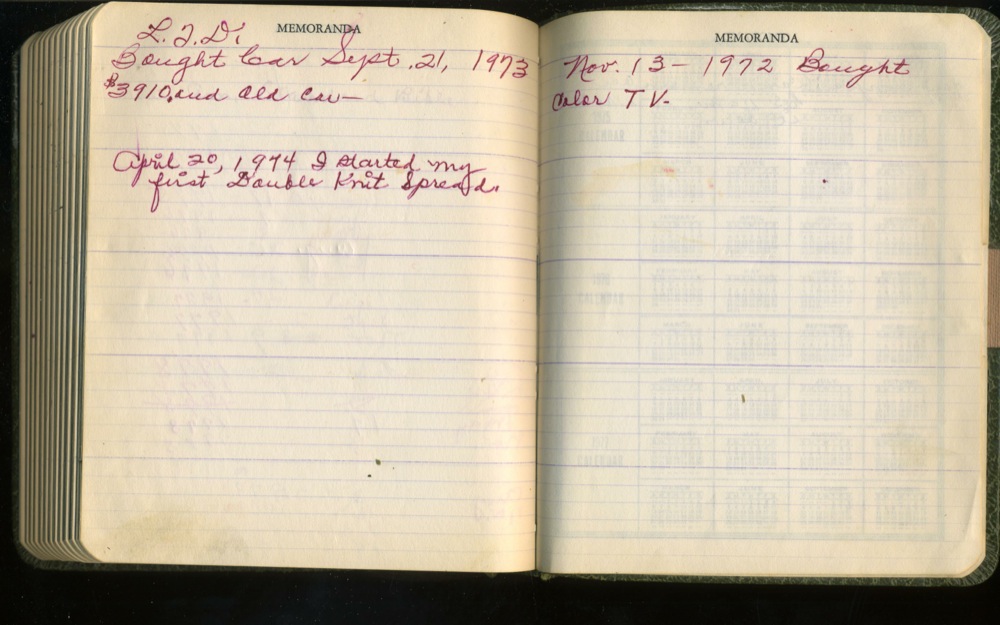 MEMORANDA
L.T.D.
Bought Car Sept. 21, 1973
$3910, and old car—
April 20, 1974 I started my
first Double Knit Spread.
MEMORANDA
Nov. 13 - 1972 Bought
Color TV.